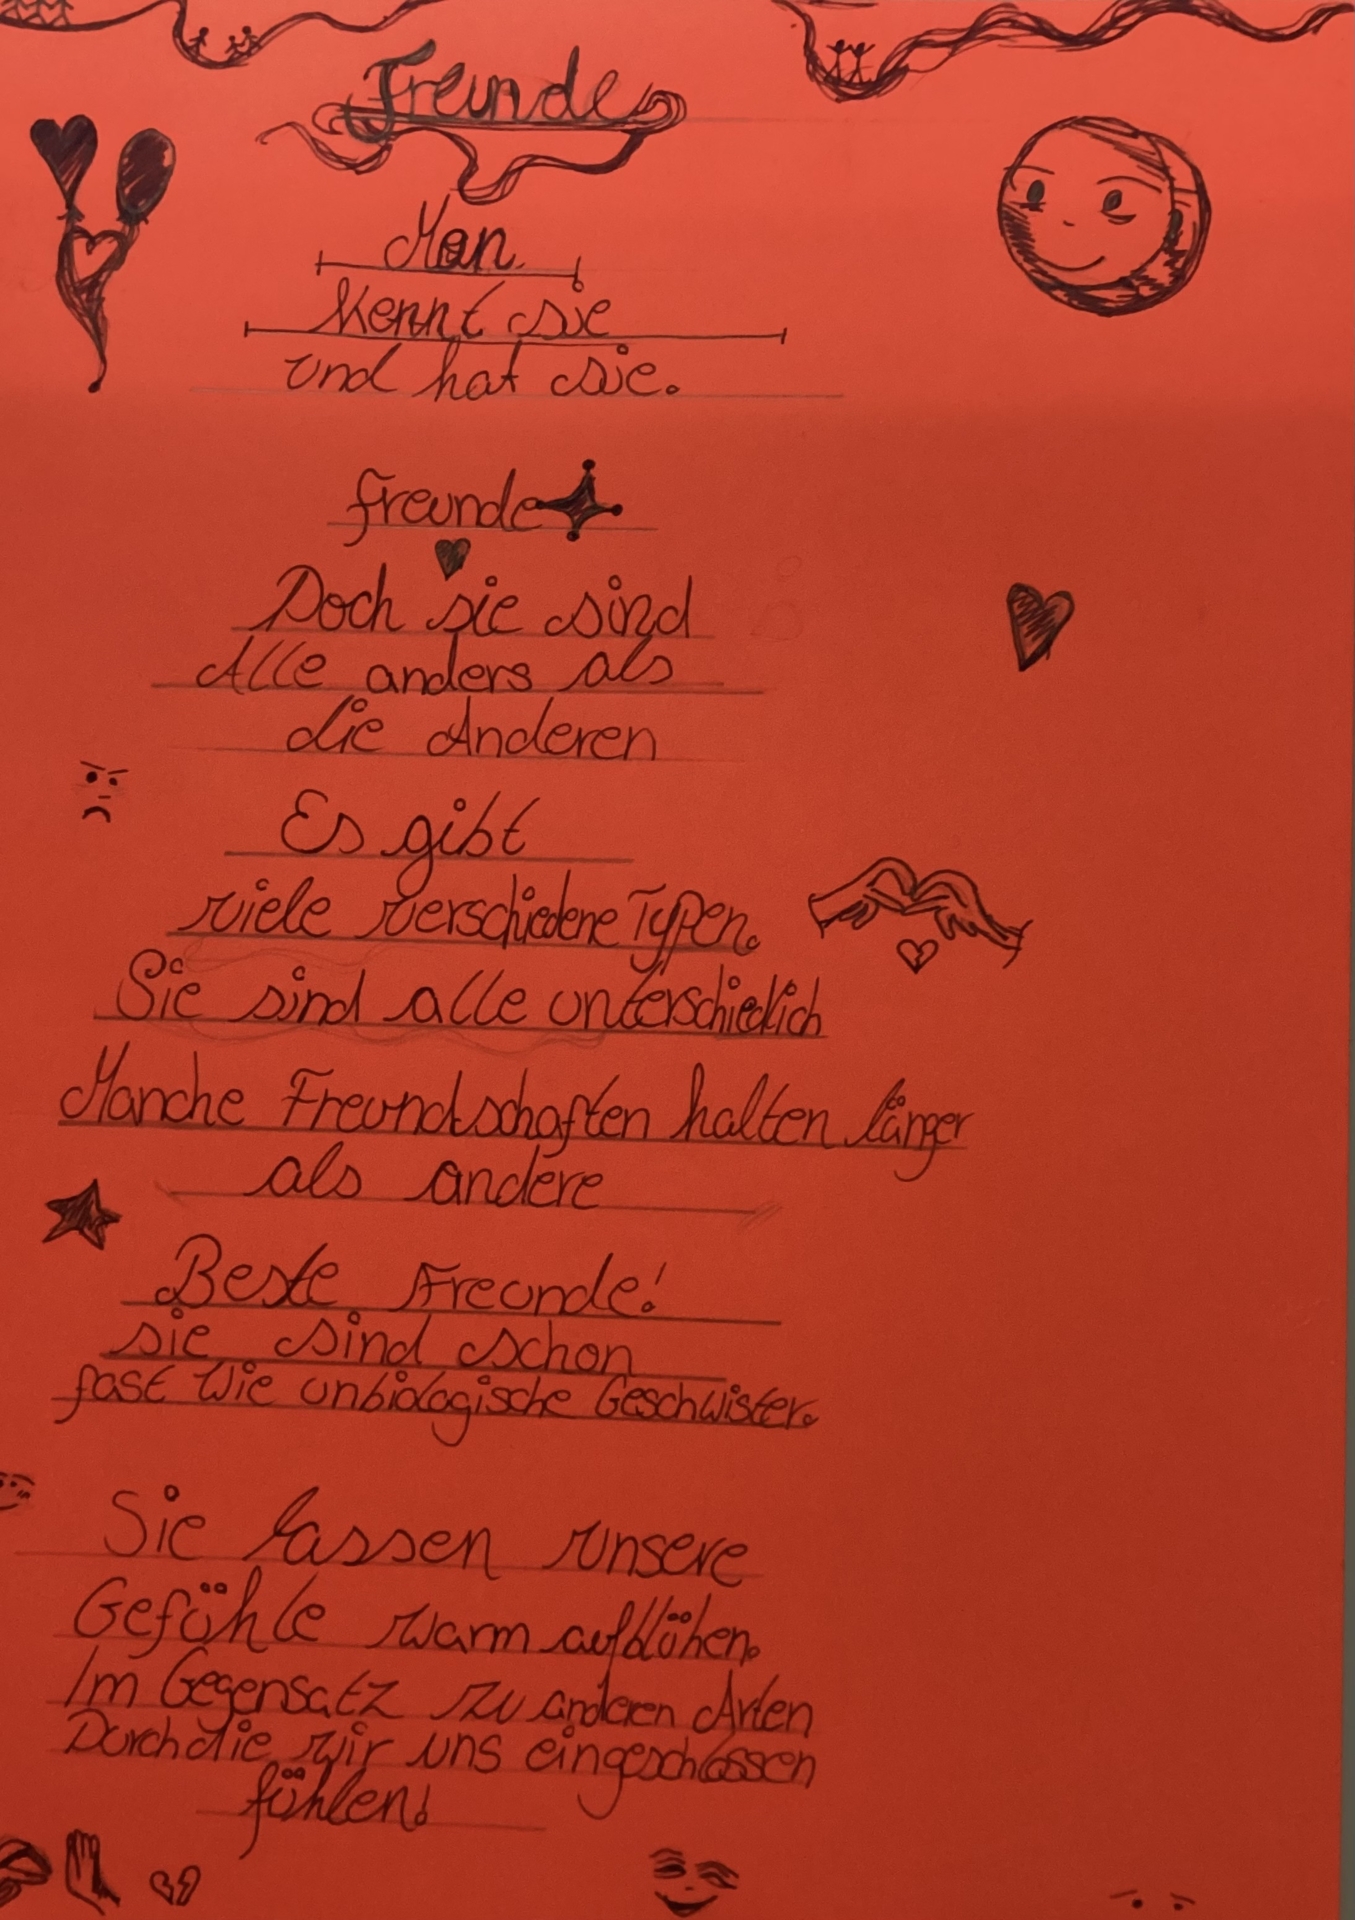 Freunde
Man
kennt sie
und hat sie.
freunde
Doch sie sind
Alle anders als
die Anderen
Es gibt
viele verschiedene Typen.
Sie sind alle unterschiedlich
Manche Freundschaften halten länger
als andere
Beste Freunde!
sie sind schon
fast wie unbiologische Geschwister.
Sie lassen unsere
Gefühle warm aufblühen.
Im Gegensatz zu anderen Arten
Durch die wir uns eingeschlossen
fühlen!